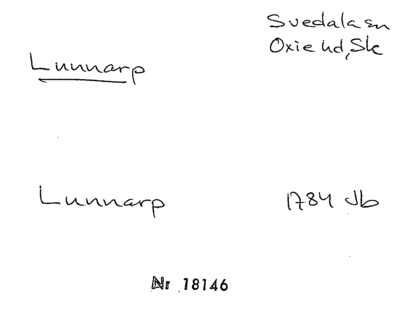 Svedala sn
Oxie hd, Sk
Lunnarp
Lunnarp 1784 Jb
Nr 18146